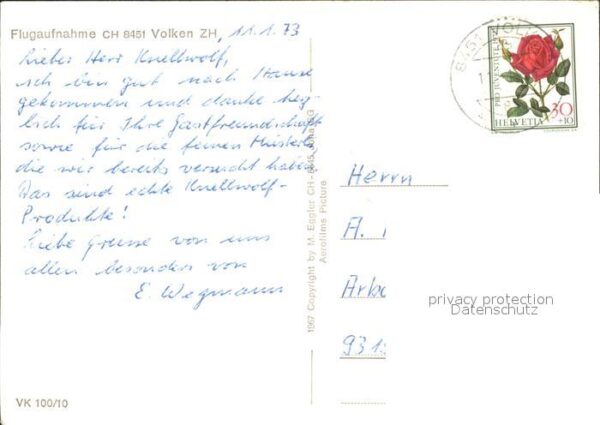 Flugaufnahme CH 8451 Volken ZH, 11.1.73
Lieber Herr Knellwolf,
ich bin gut nach Hause
gekommen und danke herz-
lich für Ihre Gastfreundschaft
sowie für die feinen Müsterli,
die wir bereits versucht haben.
Das sind echte Knellwolf-
Produkte!
Liebe Grüsse von uns
allen besonders von
E. Wegmann
VK 100/10
1967 Copyright by M. Eggler CH-
Aerofilms Picture
8451 VOLKEN
PRO JUVENTUTE 1972
30
+10
HELVETIA
Herrn
A.
Arbo
931
privacy protection
Datenschutz